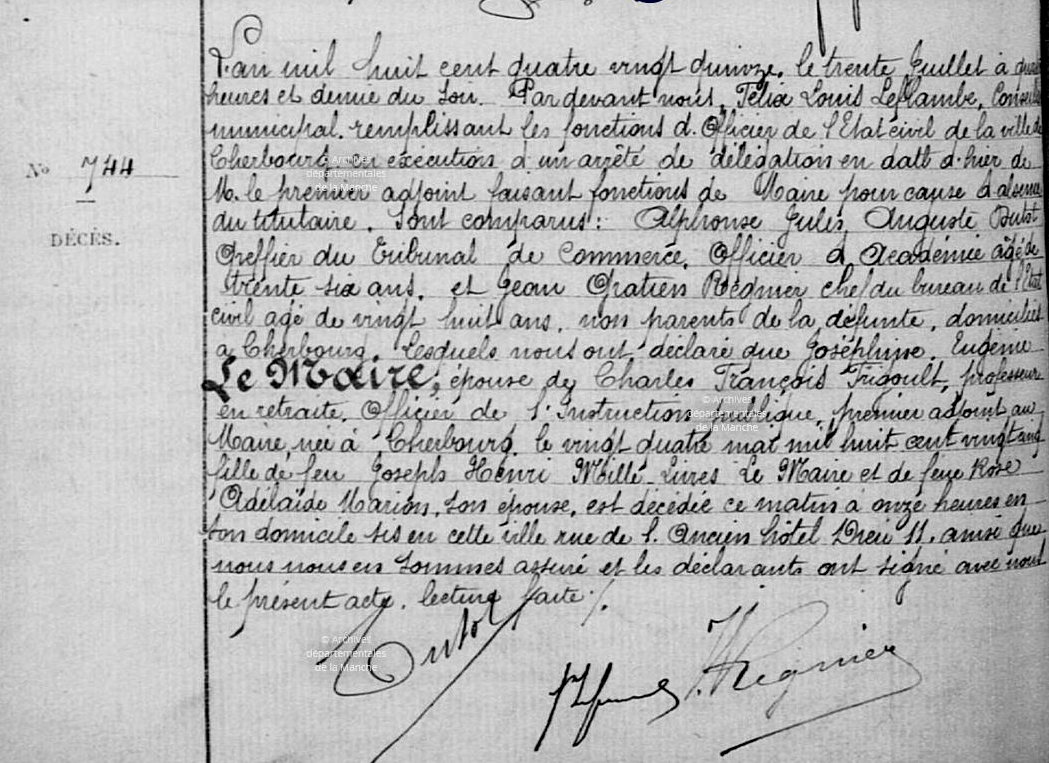 L'an mil huit cent quatre vingt quinze, le trente Juillet à
heures et demie du soir. Par devant nous, Félix Louis Leflambe, Conseiller
municipal, remplissant les fonctions d'Officier de l'Etat civil de la ville de
Cherbourg en exécution d'un arrêté de délégation en date d'hier de
M. le premier adjoint faisant fonctions de Maire pour cause d'absence
du titutaire. Sont comparus: Alphonse Jules, Auguste Dutot
Greffier du Tribunal de Commerce, Officier d'Académie âgé de
trente six ans, et Jean Gratien Regnier chef du bureau de l'Etat
civil âgé de vingt huit ans, non parents de la défunte, domiciliés
à Cherbourg, lesquels nous ont déclaré que Joséphine, Eugénie
Le Maire, épouse de Charles François Frigoult, professeur
en retraite, Officier de l'Instruction publique, premier adjoint au
Maire, née à Cherbourg, le vingt quatre mai mil huit cent vingt
fille de feu Joseph Henri Mille-Livres Le Maire et de feue Rose
Adélaïde Marion, son épouse, est décédée ce matin à onze heures en
son domicile sis en cette ville rue de l'Ancien hôtel Dieu 11, ainsi que
nous nous en sommes assuré et les déclarants ont signé avec nous
le présent acte, lecture faite ./.
N° 744
DÉCÈS.
Dutot
Regnier
© Archives
départementales
de la Manche
© Archives
départementales
de la Manche
© Archives
départementales
de la Manche